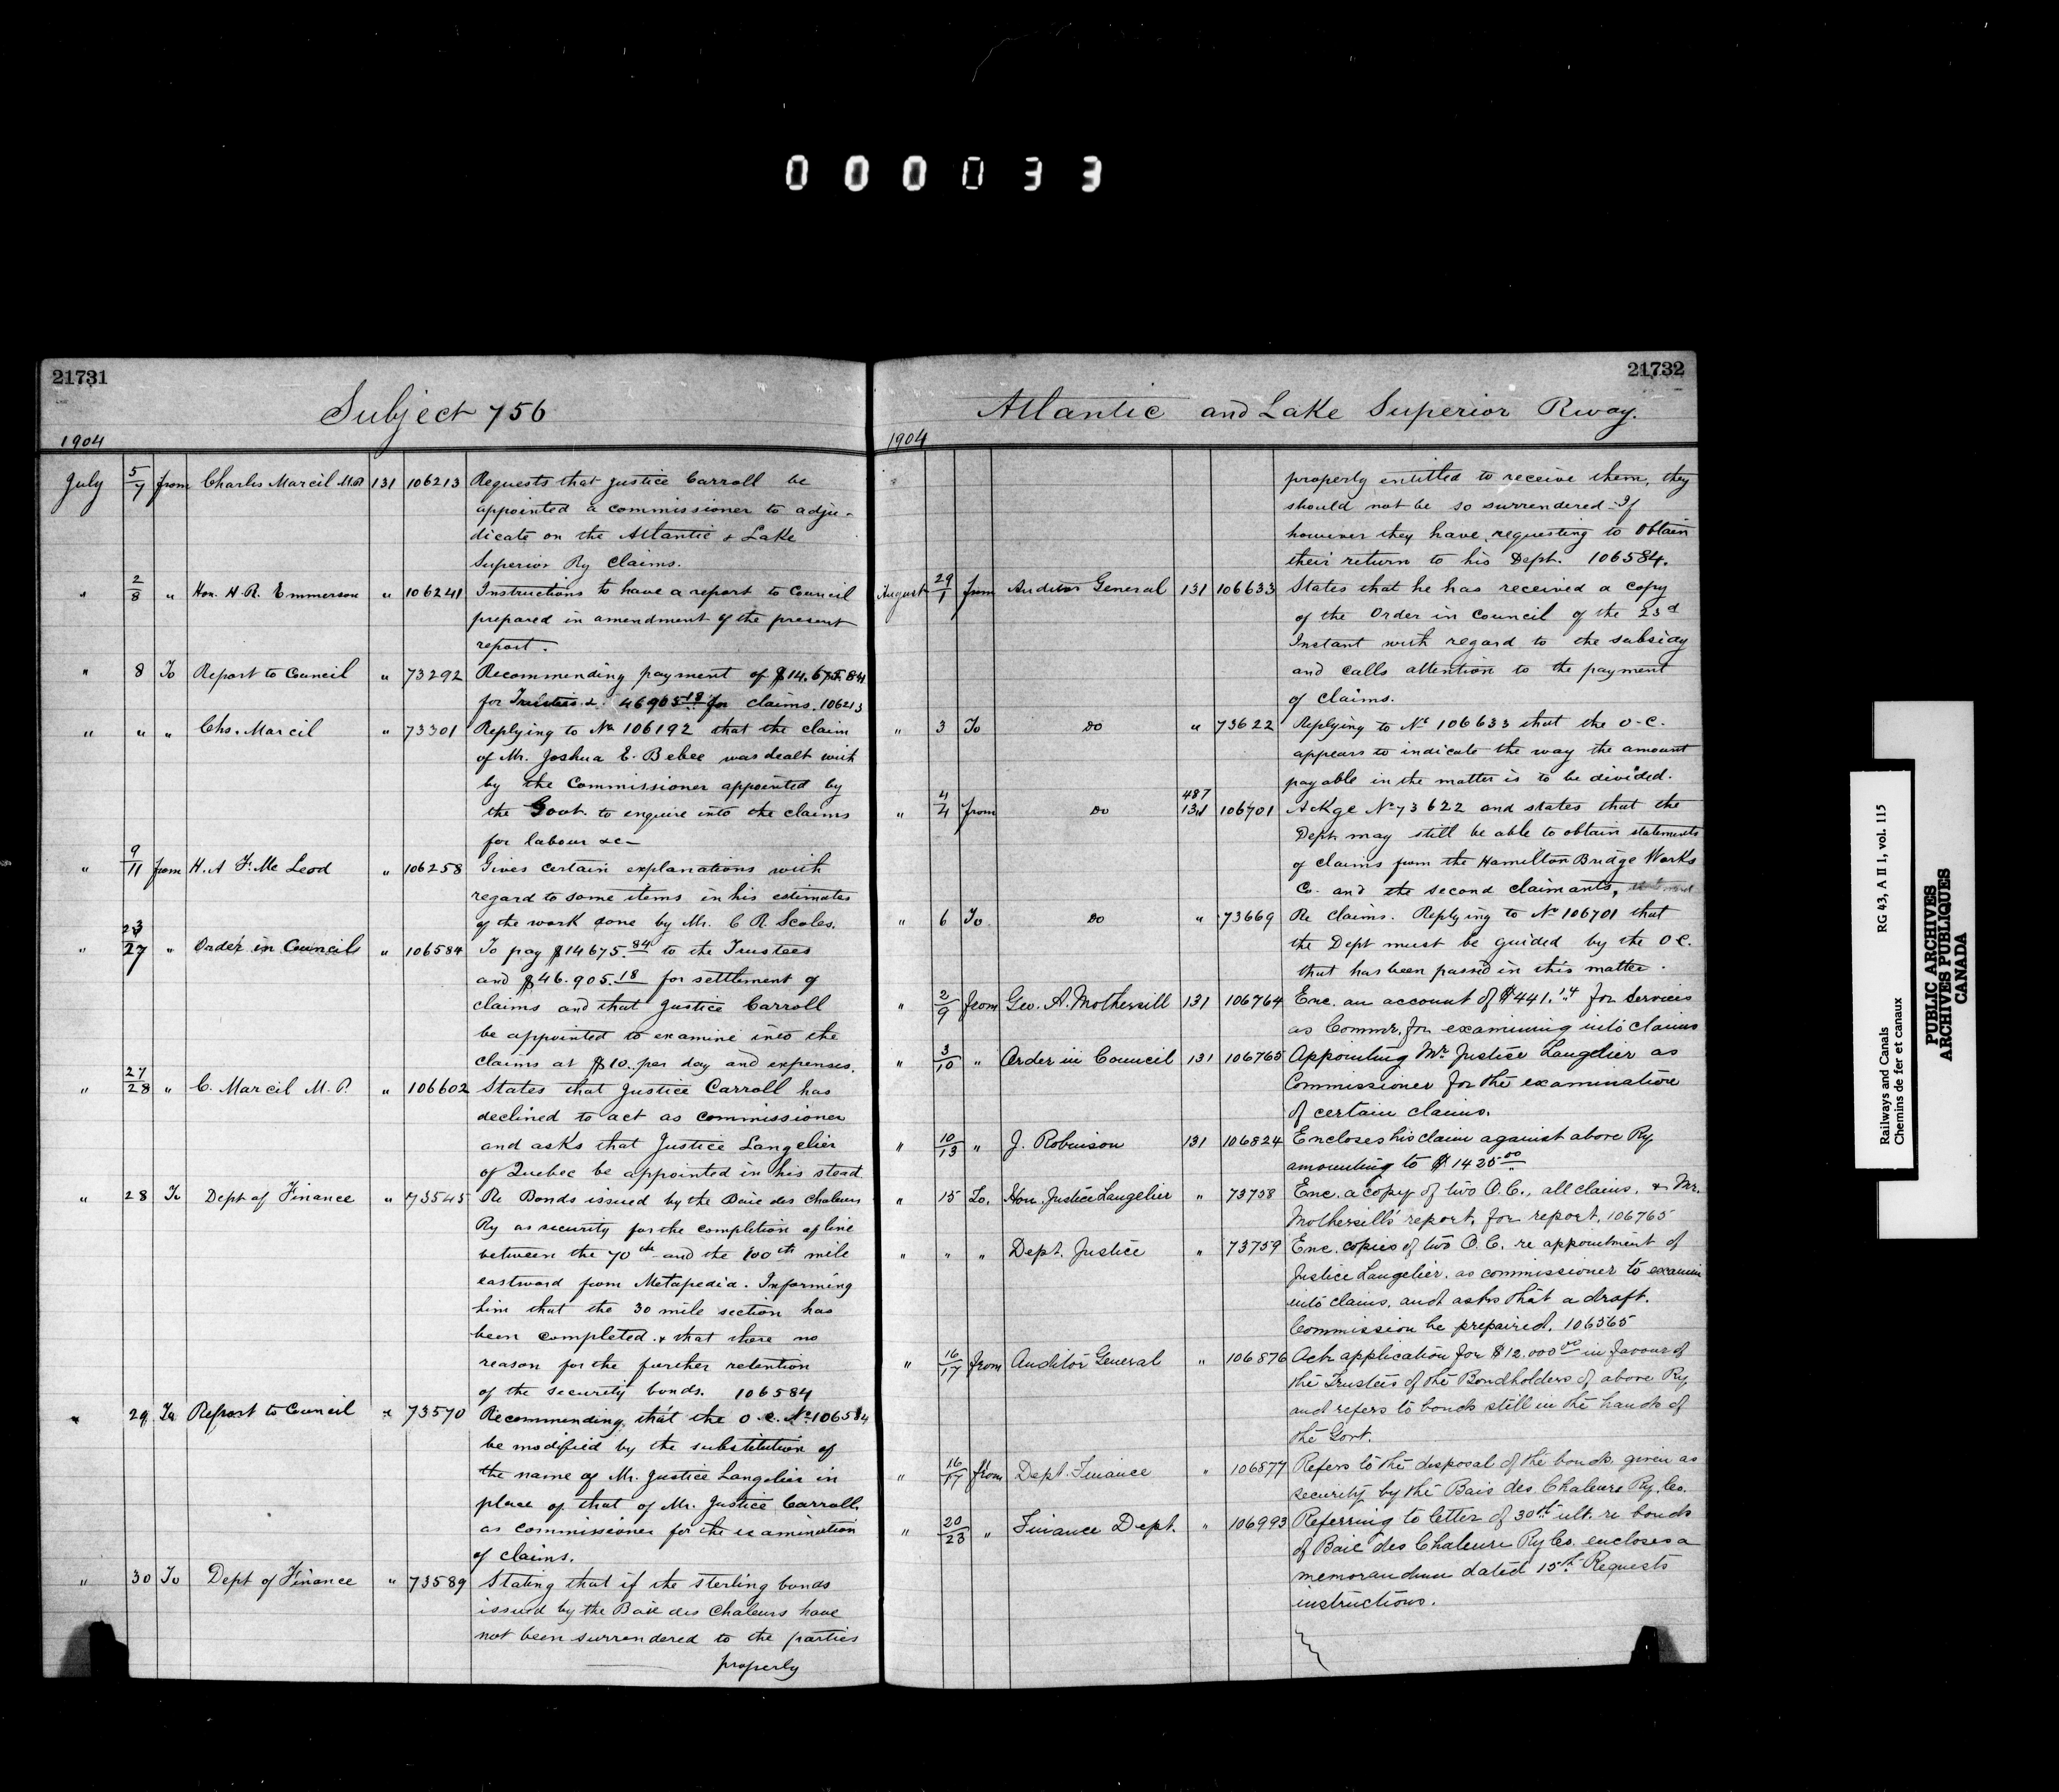 000033
21731
Subject 756
1904
July 5/7 from Charles Marcil M.P. 131 106213 Requests that Justice Carroll be
appointed a commissioner to adju-
dicate on the Atlantic & Lake
Superior Ry Claims.
" 2/8 " Hon. H. R. Emmerson " 106241 Instructions to have a report to Council
prepared in amendment of the present
report.
" 8 To Report to Council " 73292 Recommending payment of $14.675.84
for Trustees & 46905.18 for claims. 106213
" " " Chs. Marcil " 73301 Replying to No 106192 that the claim
of Mr. Joshua E. Bebee was dealt with
by the Commissioner appointed by
the Govt. to enquire into the claims
for labour &c-
" 9/11 from H. A. F. Mc Leod " 106258 Gives certain explanations with
regard to some items in his estimates
of the work done by Mr. C. R. Scoles.
" 23/27 " Order in Councils " 106584 To pay $14675.84 to the Trustees
and $46.905.18 for settlement of
claims and that Justice Carroll
be appointed to examine into the
claims at $10. per day and expenses.
" 27/28 " C. Marcil M. P. " 106602 States that Justice Carroll has
declined to act as commissioner
and asks that Justice Langelier
of Quebec be appointed in his stead.
" 28 To Dept of Finance " 73545 Re Bonds issued by the Baie des Chaleurs
Ry as security for the completion of line
between the 70th and the 100th mile
eastward from Metapedia. Informing
him that the 30 mile section has
been completed & that there no
reason for the further retention
of the security bonds. 106584
" 29 To Report to Council " 73570 Recommending, that the O.C. No 106584
be modified by the substitution of
the name of Mr. Justice Langelier in
place of that of Mr. Justice Carroll
as commissioner for the examination
of claims.
" 30 To Dept of Finance " 73589 Stating that if the sterling bonds
issued by the Baie des Chaleurs have
not been surrendered to the parties
properly
21732
Atlantic and Lake Superior Rway.
1904
properly entitled to receive them, they
should not be so surrendered - If
however they have, requesting to obtain
their return to his Dept. 106584.
August 29/1 from Auditor General 131 106633 States that he has received a copy
of the Order in Council of the 23d
Instant with regard to the subsidy
and calls attention to the payment
of claims.
" 3 To Do " 73622 Replying to No 106633 that the O-C.
appears to indicate the way the amount
payable in the matter is to be divided.
" 4/4 from Do 487 131 106701 Ackge No 73622 and states that the
Dept. may still be able to obtain statements
of claims from the Hamilton Bridge Works
Co. and the second claimants,
" 6 To Do " 73669 Re claims. Replying to No 106701 that
the Dept must be guided by the O C.
that has been passed in this matter.
" 2/9 from Geo. A. Mothersill 131 106764 Enc. an account of $441.14 for services
as Commr. for examining into claims
" 3/10 " Order in Council 131 106765 Appointing Mr. Justice Langelier as
Commissioner for the examination
of certain claims.
" 10/13 " J. Robinson 131 106824 Encloses his claim against above Ry
amounting to $1425.00
" 15 To. Hon. Justice Langelier " 73758 Enc. a copy of two O.C., all claims, & Mr.
Mothersill's report, for report. 106765
" " " Dept. Justice " 73759 Enc. copies of two O.C. re appointment of
Justice Langelier, as commissioner to examine
into claims, and asks that a draft.
Commission be prepaired. 106565
" 16/17 from Auditor General " 106876 Ack application for $12.000.00 in favour of
the Trustees of the Bondholders of above Ry
and refers to bonds still in the hands of
the Govt.
" 16/17 from Dept. Finance " 106877 Refers to the disposal of the bonds given as
security by the Bais des Chaleurs Ry. Co.
" 20/23 " Finance Dept. " 106993 Referring to letter of 30th ult. re bonds
of Baie des Chaleurs Ry Co. encloses a
memorandum dated 15th. Requests
instructions.
Railways and Canals RG 43, A II 1, vol. 115
Chemins de fer et canaux
PUBLIC ARCHIVES
ARCHIVES PUBLIQUES
CANADA